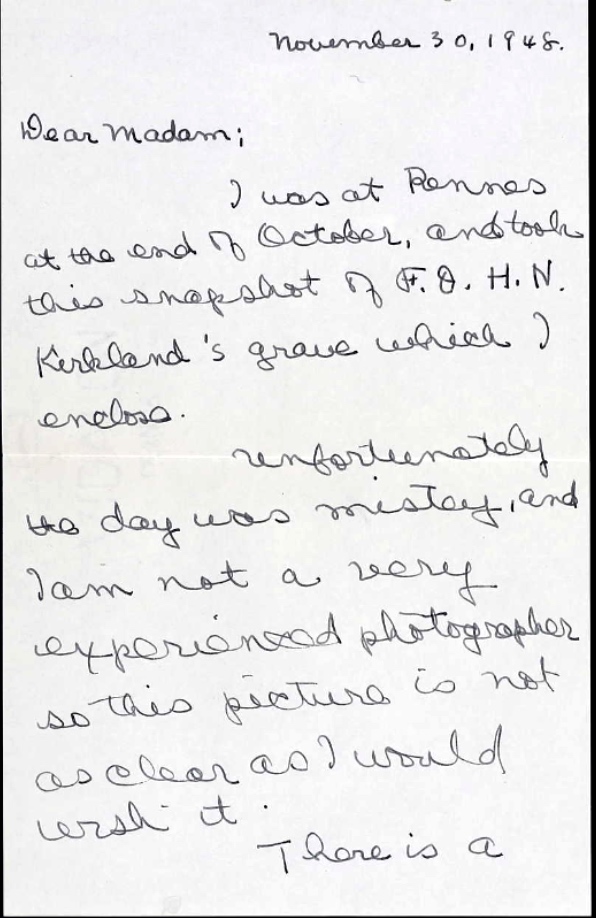 November 30, 1948.
Dear Madam;
I was at Rennes
at the end of October, and took
this snapshot of F.O. H.N.
Kerkland's grave which I
enclose.
Unfortunately
the day was mistey, and
I am not a very
experienced photographer
so this picture is not
as clear as I would
wish it.
There is a